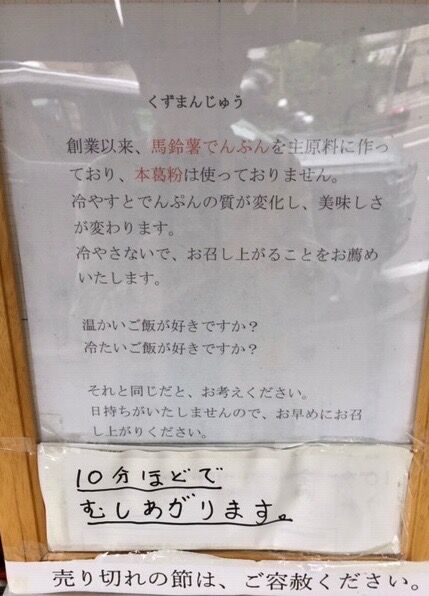 くずまんじゅう
創業以来、馬鈴薯でんぷんを主原料に作っ
ており、本葛粉は使っておりません。
冷やすとでんぷんの質が変化し、美味しさ
が変わります。
冷やさないで、お召し上がることをお薦め
いたします。
温かいご飯が好きですか？
冷たいご飯が好きですか？
それと同じだと、お考えください。
日持ちがいたしませんので、お早めにお召
し上がりください。
10分ほどで
むしあがります。
売り切れの節は、ご容赦ください。